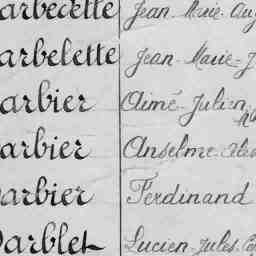 arbedette Jean-Marie-Aug
arbelette Jean-Marie-J
arbier Aimé-Julien
arbier Anselme-
arbier Ferdinand
arblet Lucien-Jules-